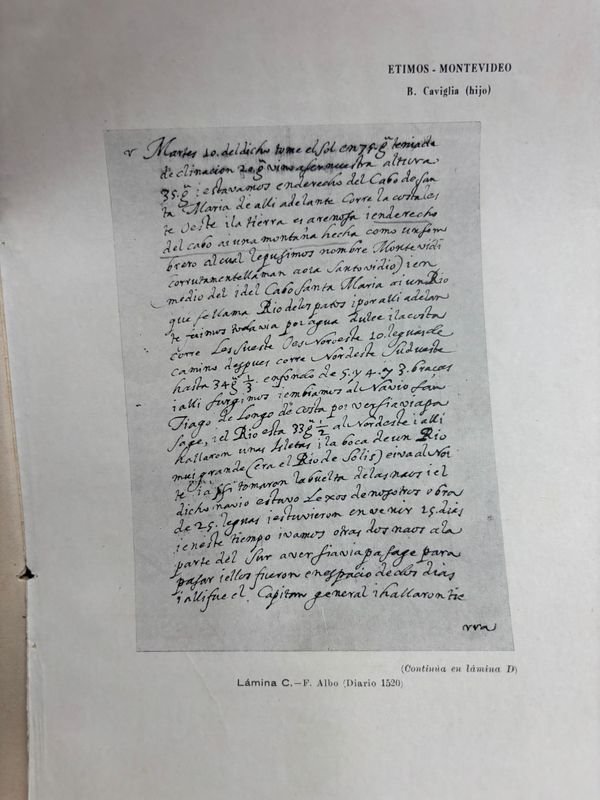 ETIMOS - MONTEVIDEO
B. Caviglia (hijo)
Martes 10. del dicho tome el sol en 75. g̃ tenia de
de clinacion 20 g̃ vino a ser nuestra altura
35. g̃ i estavamos en derecho del Cabo de San
ta Maria de alli adelante Corre la costa les
te Oeste i la tierra es arenosa i en derecho
del cabo ai una montaña hecha como un som
brero al cual le pusimos nombre Montevidi
corrutamente llaman aora Santovidio) i en
medio del i del Cabo Santa Maria ai un Rio
que se llama Rio de los patos i por alli adelan
te fuimos todavia por agua dulce i la costa
corre Les sueste Oes Noroeste 10. leguas de
camino despues corre Nordeste Sudueste
hasta 34 g̃ 1/3. en fondo de 5. y 4. y 3. bracas
i alli surgimos i embiamos al Navio San
Tiago de Longo de costa por ver si avia pa
sage, i el Rio esta 33 g̃ 1/2 al Nordeste i alli
hallaron unas Isletas i la boca de un Rio
mui grande (era el Rio de Solis) e iva al Nor
te i assi tomaron la buelta de las naos i el
dicho navio estuvo Lexos de nosotros obra
de 25. leguas i estuvieron en venir 15. dias
i en este tiempo ivamos otras dos naos a la
parte del Sur a ver si avia pasage para
pasar i ellos fueron en espacio de dos dias
i alli fue el Capitan general i hallaron tie
rra
(Continúa en lámina D)
Lámina C.—F. Albo (Diario 1520)